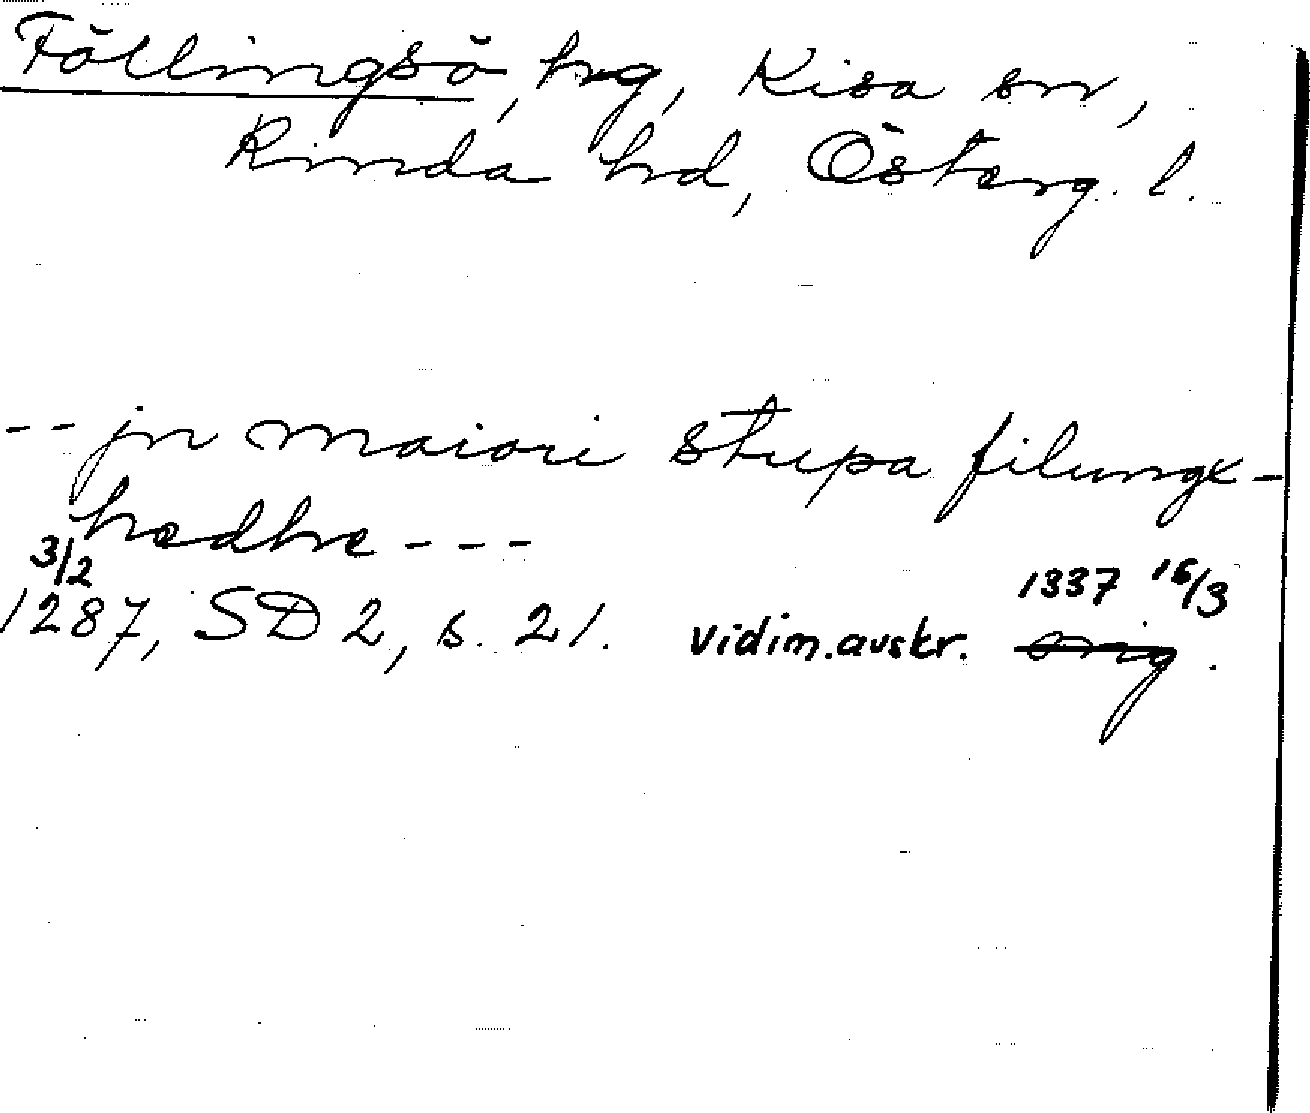 Föllingsö, hrg, Kisa sn,
Kinda hd, Österg. l.
-- jn maiori stupa filungx-
hædhe ---
3/2
1287, SD 2, s. 21. vidim.avskr. 1337 16/3 orig.